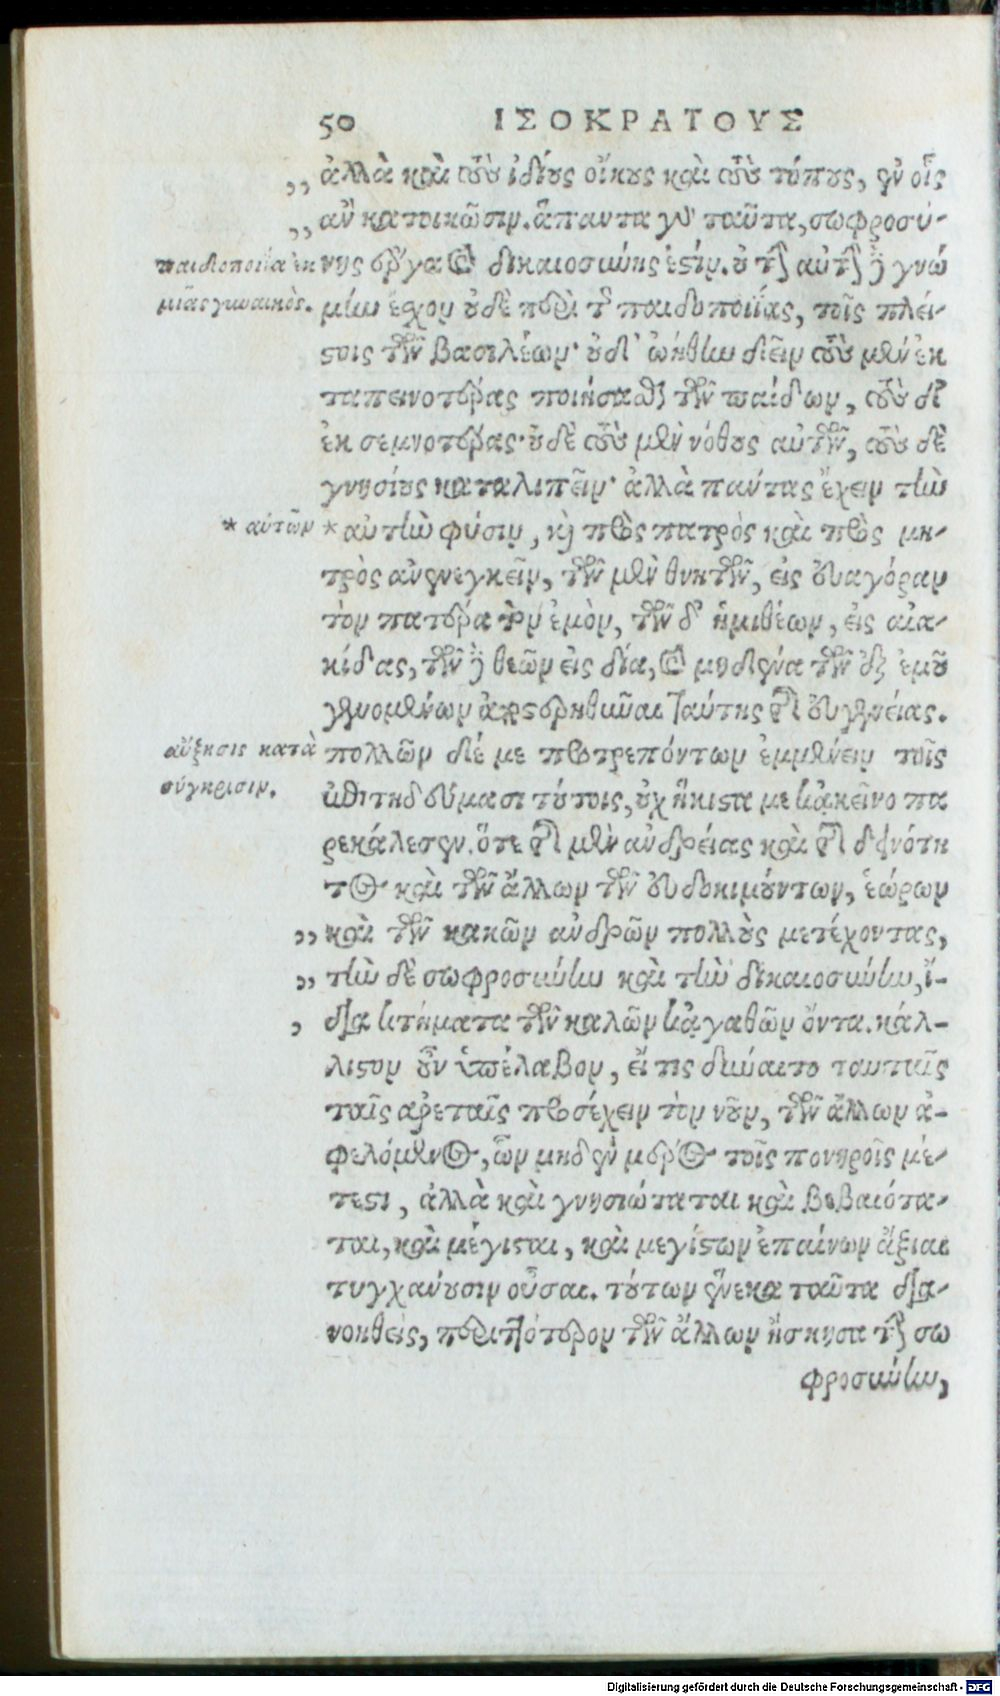 50 ΙΣΟΚΡΑΤΟΥΣ
,, ἀλλὰ καὶ τοὺς ἰδίους οἴκους καὶ τοὺς τόπους, ἐν οἷς
,, ἂν κατοικῶσιν. ἅπαντα γὰρ ταῦτα, σωφροσύ-
παιδιοποιΐα ἐκ
μιᾶς γυναικὸς.
νης ἔργα καὶ δικαιοσύνης ἐστίν. οὐ τὴν αὐτὴν δὲ γνώ
μην ἔσχον οὐδὲ περὶ τῆς παιδοποιΐας, τοῖς πλεί-
στοις τῶν βασιλέων· οὐδ' ὠήθην δεῖν τοὺς μὲν ἐκ
ταπεινοτέρας ποιήσασθαι τῶν παίδων, τοὺς δ'
ἐκ σεμνοτέρας· οὐδὲ τοὺς μὲν νόθους αὐτῶν, τοὺς δὲ
γνησίους καταλιπεῖν· ἀλλὰ πάντας ἔχειν τὴν
* αὐτῶν
* αὐτὴν φύσιν, καὶ πρὸς πατρὸς καὶ πρὸς μη-
τρὸς ἀνενεγκεῖν, τῶν μὲν θνητῶν, εἰς εὐαγόραν
τὸν πατέρα τὸν ἐμὸν, τῶν δ' ἡμιθέων, εἰς αἰα-
κίδας, τῶν δὲ θεῶν εἰς δία, καὶ μηδένα τῶν ἐξ ἐμοῦ
γενομένων ἀποστερηθῆναι ταύτης τῆς εὐγενείας.
αὔξησις κατὰ
σύγκρισιν.
πολλῶν δέ με προτρεπόντων ἐμμένειν τοῖς
ἐπιτηδεύμασι τούτοις, οὐχ ἥκιστα με κἀκεῖνο πα
ρεκάλεσεν. ὅτε τῆς μὲν ἀνδρείας καὶ τῆς δεινότη
τος καὶ τῶν ἄλλων τῶν εὐδοκιμούντων, ἑώρων
,, καὶ τῶν κακῶν ἀνδρῶν πολλοὺς μετέχοντας,
,, τὴν δὲ σωφροσύνην καὶ τὴν δικαιοσύνην, ἴ-
, δια κτήματα τῶν καλῶν κἀγαθῶν ὄντα. κάλ-
λιστον οὖν ὑπέλαβον, εἴ τις δύναιτο ταύταις
ταῖς ἀρεταῖς προσέχειν τὸν νοῦν, τῶν ἄλλων ἀ-
φελόμενος, ὧν μηδὲν μέρος τοῖς πονηροῖς μέ-
τεστι, ἀλλὰ καὶ γνησιώταται καὶ βεβαιότα-
ται, καὶ μέγισται, καὶ μεγίστων ἐπαίνων ἄξιαι
τυγχάνουσιν οὖσαι. τούτων ἕνεκα ταῦτα δια-
νοηθεὶς, περιττότερον τῶν ἄλλων ἤσκησα τὴν σω
φροσύνην,
Digitalisierung gefördert durch die Deutsche Forschungsgemeinschaft - DFG